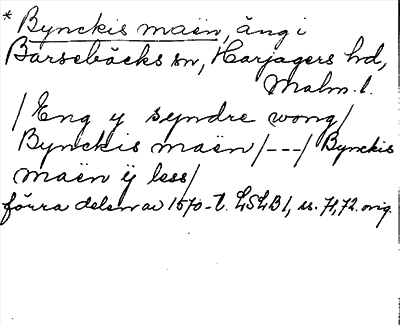 * Bynckis maën, äng i
Barsebäcks sn, Harjagers hd,
Malm. l.
/Eng y syndre wong/
Bynckis maën/---/Bynckis
maën ÿ less/
förra delen av 1570-t. LSLB1, ss. 71,72. orig.